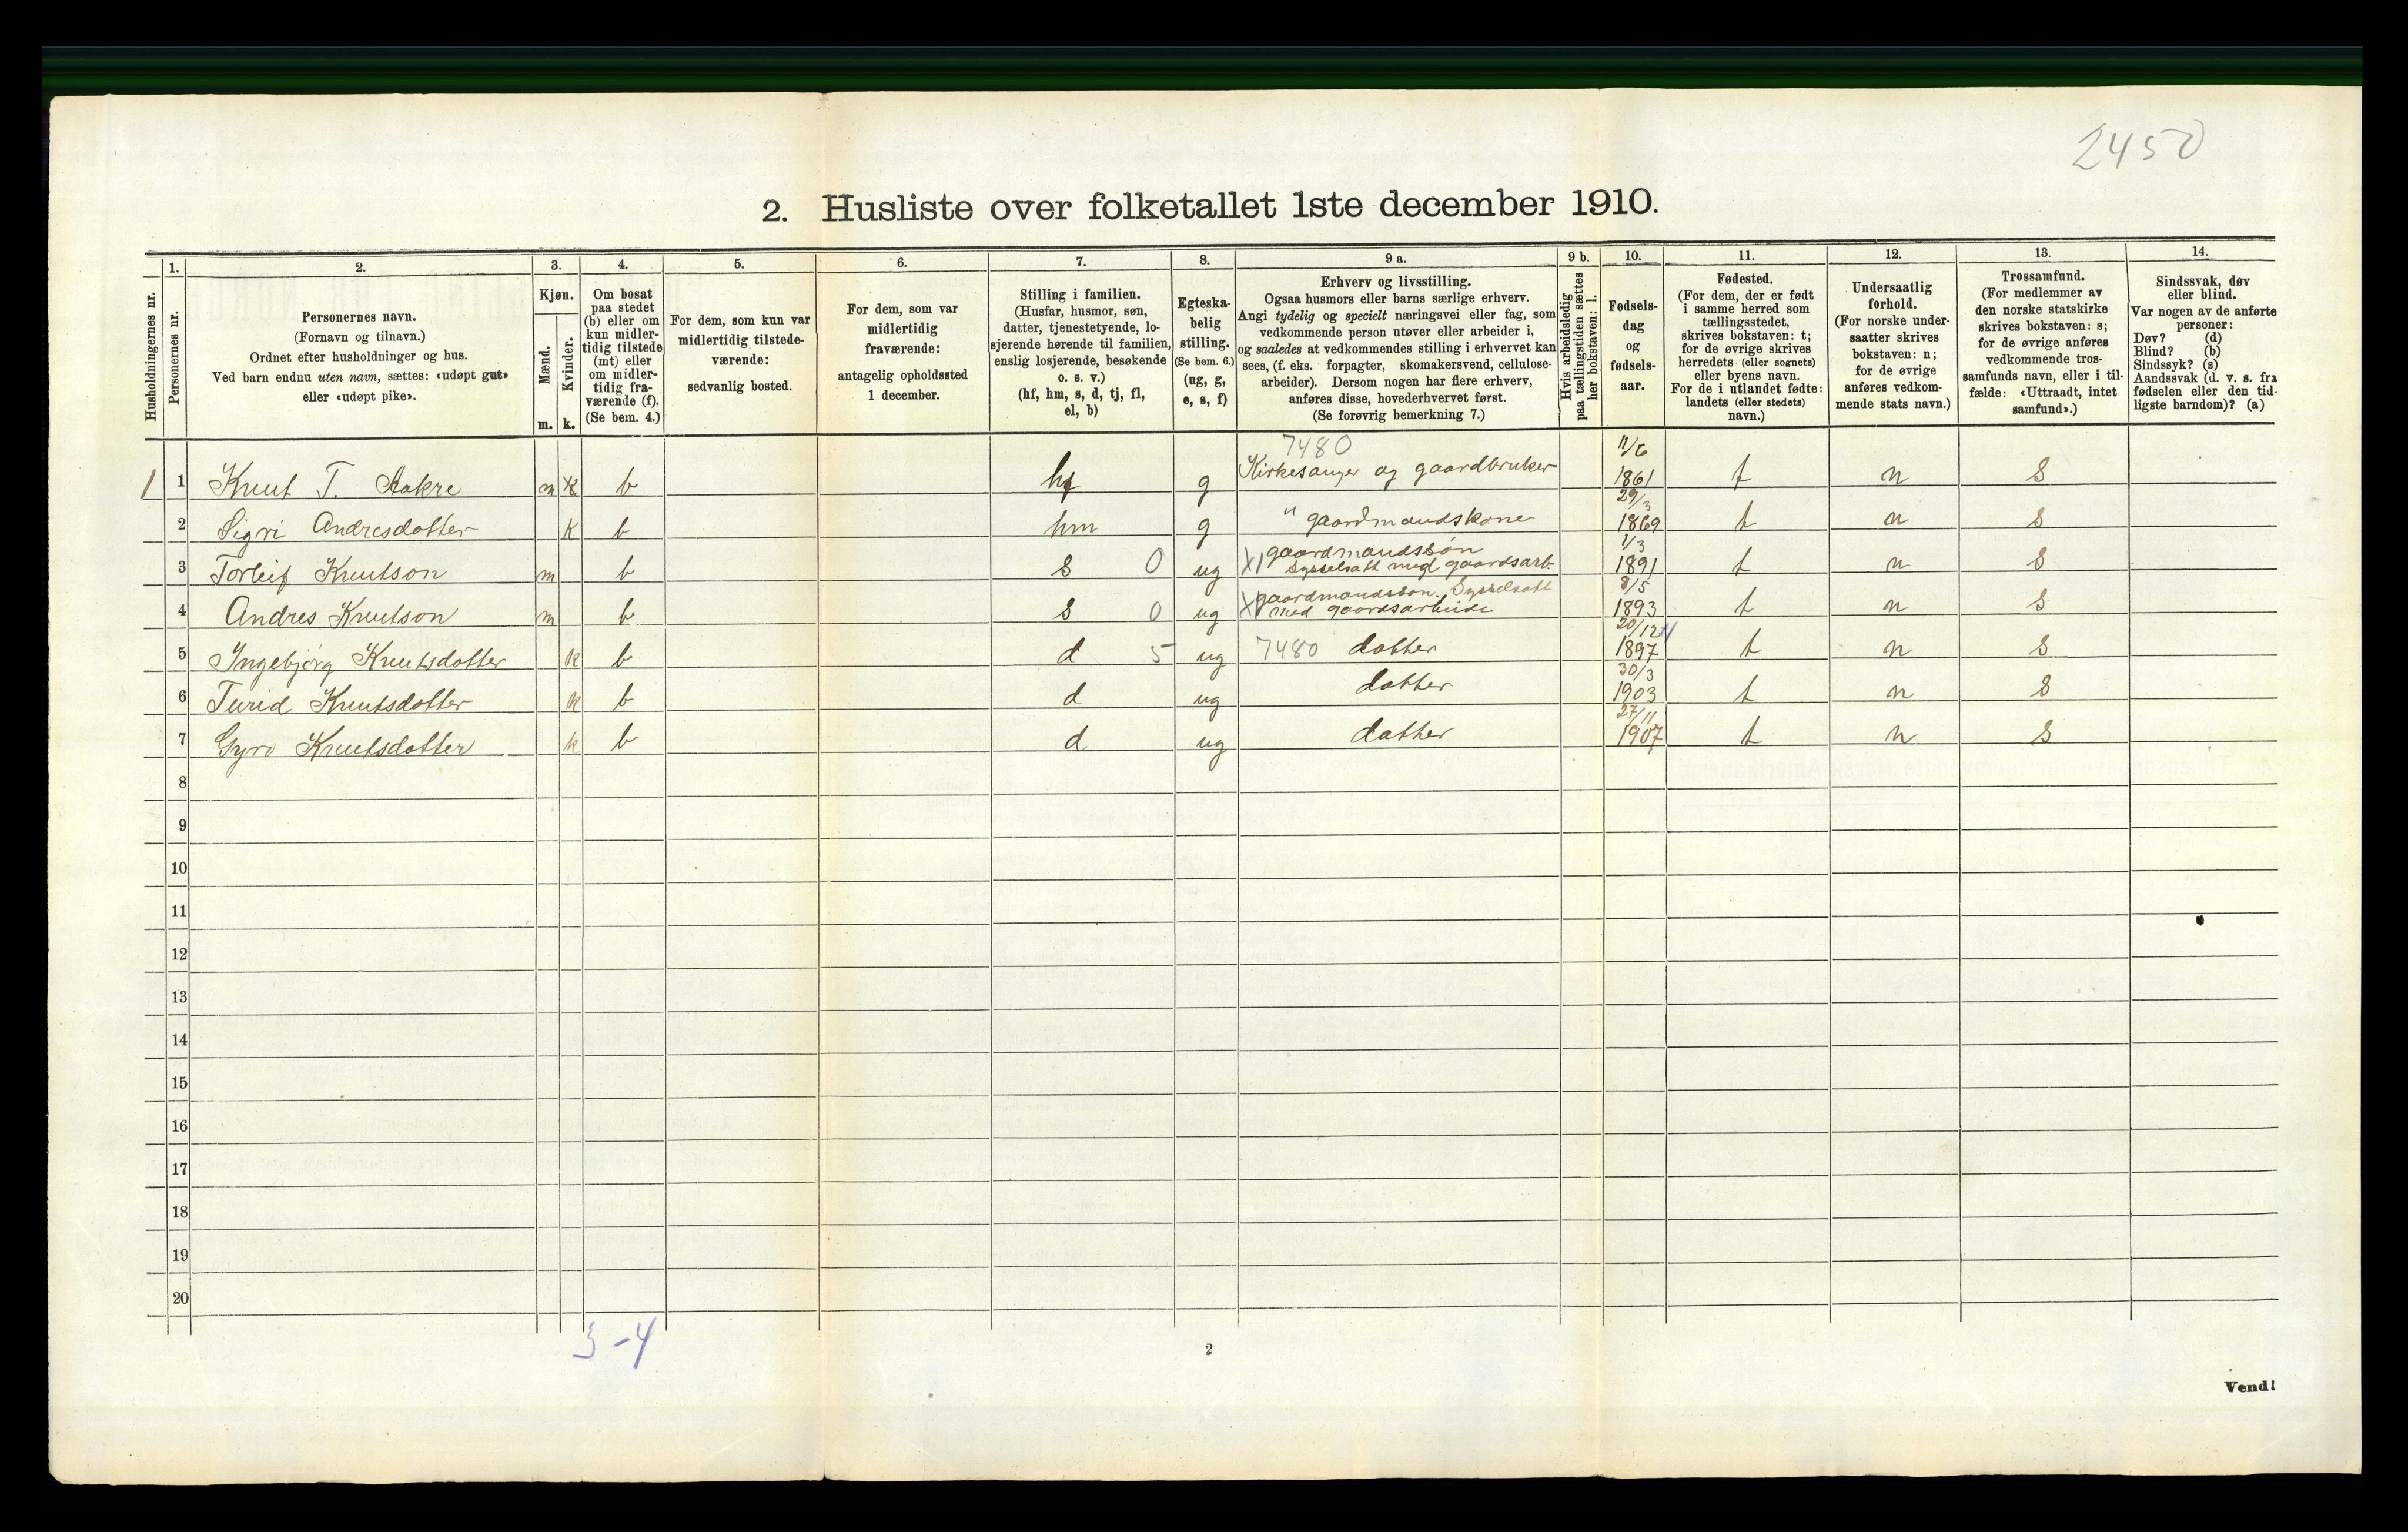 2450
2. Husliste over folketallet 1ste december 1910.
Husholdningernes nr.
1.
Personernes nr.
2.
Personernes navn.
(Fornavn og tilnavn.)
Ordnet efter husholdninger og hus.
Ved barn endnu uten navn, sættes: «udøpt gut»
eller «udøpt pike».
3.
Kjøn.
Mænd.
Kvinder.
m. k.
4.
Om bosat
paa stedet
(b) eller om
kun midler-
tidig tilstede
(mt) eller
om midler-
tidig fra-
værende (f).
(Se bem. 4.)
5.
For dem, som kun var
midlertidig tilstede-
værende:
sedvanlig bosted.
6.
For dem, som var
midlertidig
fraværende:
antagelig opholdssted
1 december.
7.
Stilling i familien.
(Husfar, husmor, søn,
datter, tjenestetyende, lo-
sjerende hørende til familien,
enslig losjerende, besøkende
o. s. v.)
(hf, hm, s, d, tj, fl,
el, b)
8.
Egteska-
belig
stilling.
(Se bem. 6.)
(ug, g,
e, s, f)
9 a.
Erhverv og livsstilling.
Ogsaa husmors eller barns særlige erhverv.
Angi tydelig og specielt næringsvei eller fag, som
vedkommende person utøver eller arbeider i,
og saaledes at vedkommendes stilling i erhvervet kan
sees, (f. eks. forpagter, skomakersvend, cellulose-
arbeider). Dersom nogen har flere erhverv,
anføres disse, hovederhvervet først.
(Se forøvrig bemerkning 7.)
9 b.
Hvis arbeidsledig
paa tællingstiden sættes
her bokstaven: l.
10.
Fødsels-
dag
og
fødsels-
aar.
11.
Fødested.
(For dem, der er født
i samme herred som
tællingsstedet,
skrives bokstaven: t;
for de øvrige skrives
herredets (eller sognets)
eller byens navn.
For de i utlandet fødte:
landets (eller stedets)
navn.)
12.
Undersaatlig
forhold.
(For norske under-
saatter skrives
bokstaven: n;
for de øvrige
anføres vedkom-
mende stats navn.)
13.
Trossamfund.
(For medlemmer av
den norske statskirke
skrives bokstaven: s;
for de øvrige anføres
vedkommende tros-
samfunds navn, eller i til-
fælde: «Uttraadt, intet
samfund».)
14.
Sindssvak, døv
eller blind.
Var nogen av de anførte
personer:
Døv? (d)
Blind? (b)
Sindssyk? (s)
Aandssvak (d. v. s. fra
fødselen eller den tid-
ligste barndom)? (a)
7480
1 1 Knut T. Aakre m b hf g Kirkesanger og gaardbruker 1861 t n S
2 Sigri Andresdotter k b hm g " gaardmandskone 29/3 1869 t n S
3 Torleif Knutson m b s 0 ug X1 gaardmandssøn sysselsatt med gaardsarb- 1/3 1891 t n S
4 Andres Knutson m b s 0 ug X gaardmandssøn. Sysselsatt med gaardsarbeide 8/5 1893 t n S
5 Ingebjørg Knutsdotter k b d 5 ug 7480 dotter 20/12 1897 t n S
6 Turid Knutsdotter k b d ug dotter 30/3 1903 t n S
7 Gyro Knutsdotter k b d ug dotter 27/11 1907 t n S
8
9
10
11
12
13
14
15
16
17
18
19
20
3-4
2
Vend!